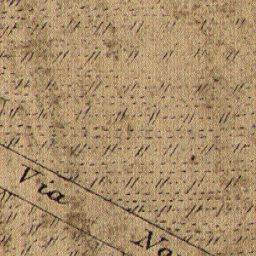 Via Na